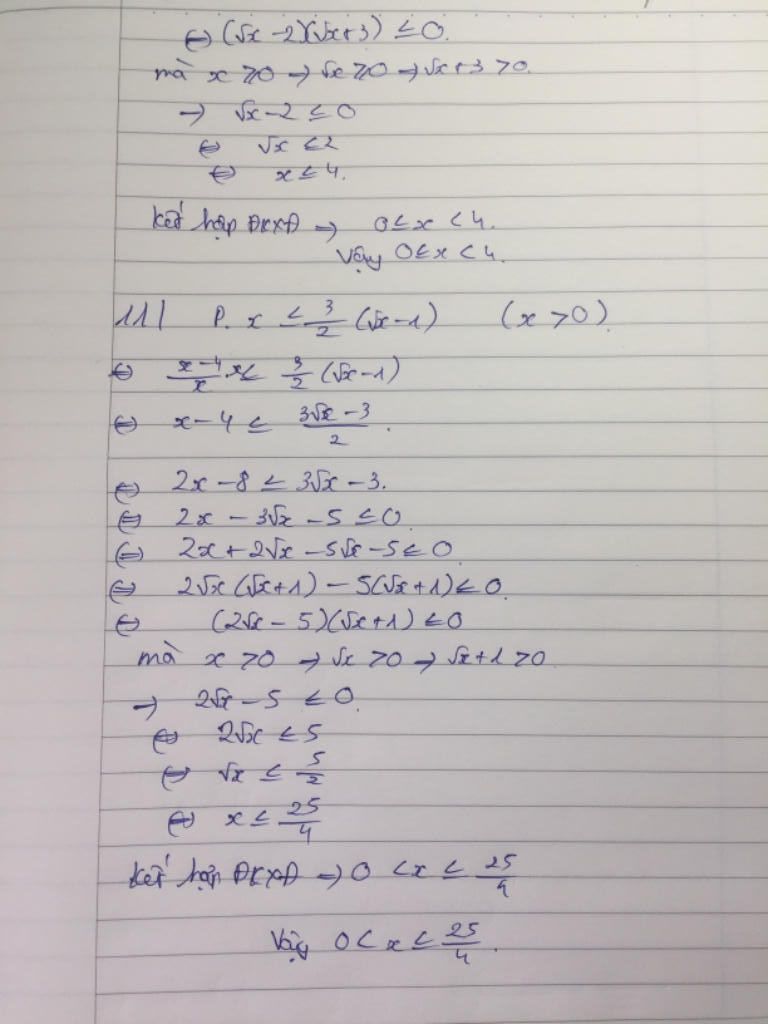 ⇔ (√x - 2)(√x + 3) ≤ 0.
mà x ≥ 0 → √x ≥ 0 → √x + 3 > 0.
→ √x - 2 ≤ 0
⇔ √x ≤ 2
⇔ x ≤ 4.
Kết hợp ĐKXĐ → 0 ≤ x < 4.
Vậy 0 ≤ x < 4.
11| P. x ≤ 3/2 (√x - 1) (x > 0).
⇔ (x - 4)/x x ≤ 3/2 (√x - 1)
⇔ x - 4 ≤ (3√x - 3)/2.
⇔ 2x - 8 ≤ 3√x - 3.
⇔ 2x - 3√x - 5 ≤ 0.
⇔ 2x + 2√x - 5√x - 5 ≤ 0.
⇔ 2√x (√x + 1) - 5(√x + 1) ≤ 0.
⇔ (2√x - 5)(√x + 1) ≤ 0
mà x > 0 → √x > 0 → √x + 1 > 0.
→ 2√x - 5 ≤ 0.
⇔ 2√x ≤ 5
⇔ √x ≤ 5/2
⇔ x ≤ 25/4
Kết hợp ĐKXĐ → 0 < x ≤ 25/4
Vậy 0 < x ≤ 25/4.